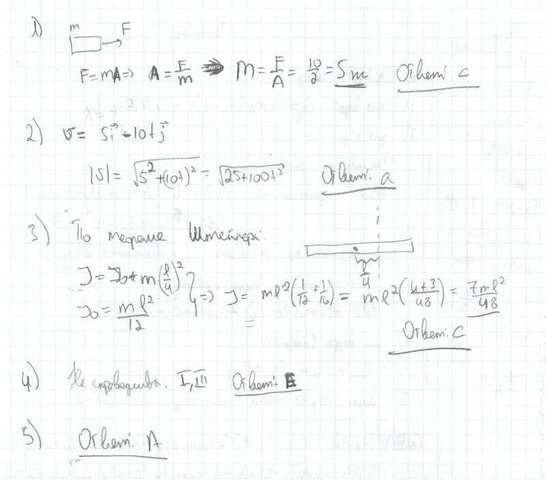 1) m F
F=mA=> A=F/m => m=F/A=10/2=5 m Ответ: c
2) v = 5i - 10t j
|v| = √(5²+(10t)²) = √(25+100t²) Ответ: a
3) По теореме Штейнера:
J = J₀ + m(l/4)² l/4
J₀ = ml²/12 } => J = ml²(1/12+1/16) = ml²((4+3)/48) = 7ml²/48
Ответ: C
4) Не справедлива. I, III Ответ: E
5) Ответ: A